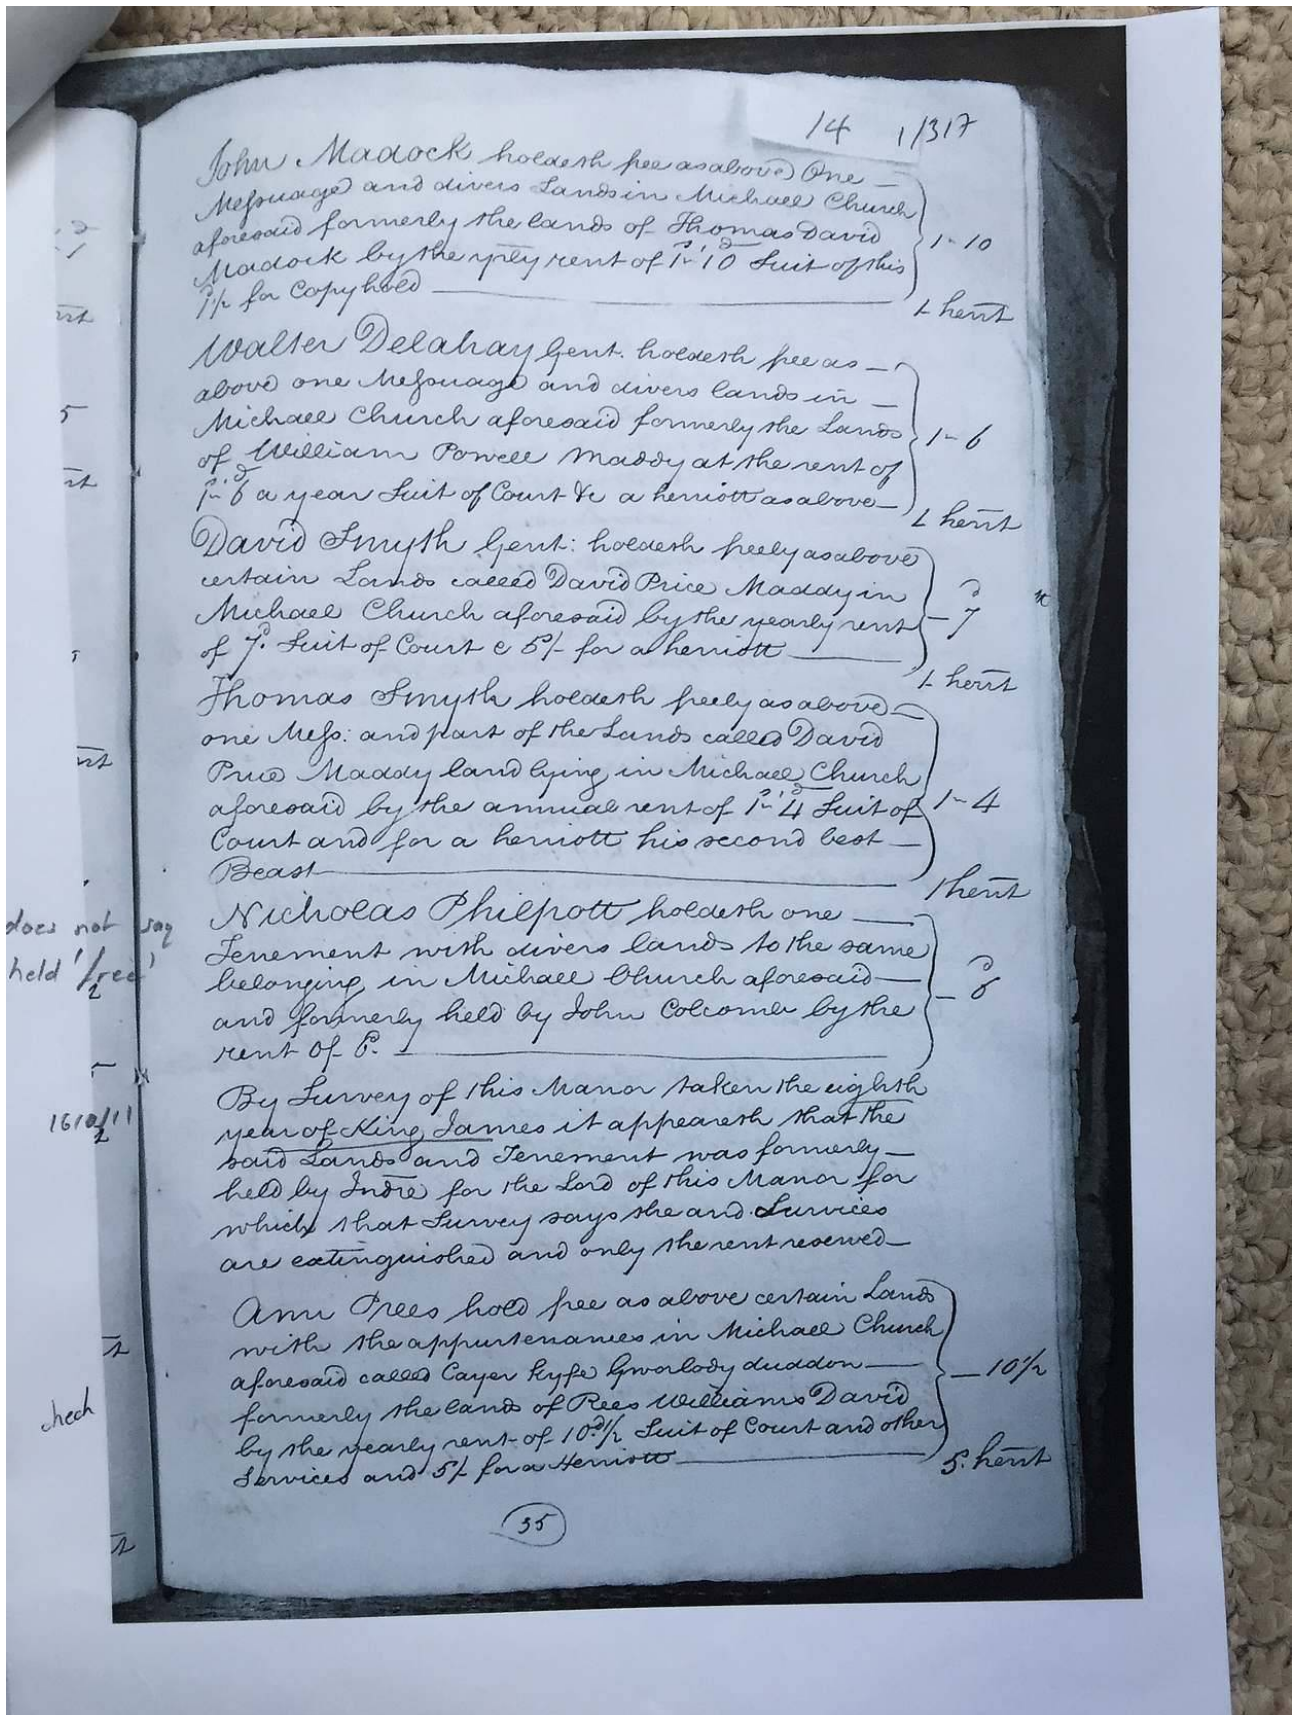 14 1/317
John Madock holdeth free as above One
Messuage and divers Lands in Michael Church
aforesaid formerly the lands of Thomas David
Madock by the yrly rent of 1s-10d Suit of this
for Copyhold
1-10
1 herit
Walter Delahay Gent. holdeth free as
above one Messuage and divers lands in
Michael Church aforesaid formerly the Lands
of William Powell Maddy at the rent of
1s-6d a year Suit of Court &c a herriott as above
1-6
1 herit
David Smyth Gent: holdeth freely as above
certain Lands called David Price Maddy in
Michael Church aforesaid by the yearly rent
of 7d. Suit of Court & 5/- for a herriott
7d
1 herit
Thomas Smyth holdeth freely as above
one Mess: and part of the Lands called David
Price Maddy land lying in Michael Church
aforesaid by the annual rent of 1s-4d Suit of
Court and for a herriott his second best
Beast
1-4
1 herit
Nicholas Philpott holdeth one
Tenement with divers lands to the same
belonging in Michael Church aforesaid
and formerly held by John Colcomb by the
rent of 6d.
6d
does not say
held 'free'
By Survey of this Manor taken the eighth
year of King James it appeareth that the
said Lands and Tenement was formerly
held by Indre for the Lord of this Manor for
which that Survey says the and Services
are extinguished and only the rent reserved
1610/11
Ann Prees hold free as above certain Lands
with the appurtenances in Michael Church
aforesaid called Cayer Gworlody duddon
formerly the lands of Rees Williams David
by the yearly rent of 10d½ Suit of Court and other
Services and 5/- for a Herriott
10½
5. herit
check
35